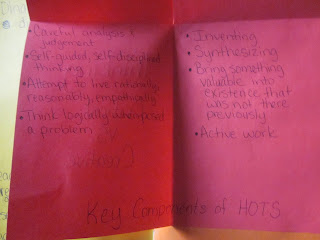 • Careful analysis &
judgement
• Self-guided, self-disciplined
thinking
• Attempt to live rationally,
reasonably, empathically
• Think logically when posed
a problem
• Inventing
• Synthesizing
• Bring something
valuable into
existence that
was not there
previously
• Active work
Key Components of HOTS